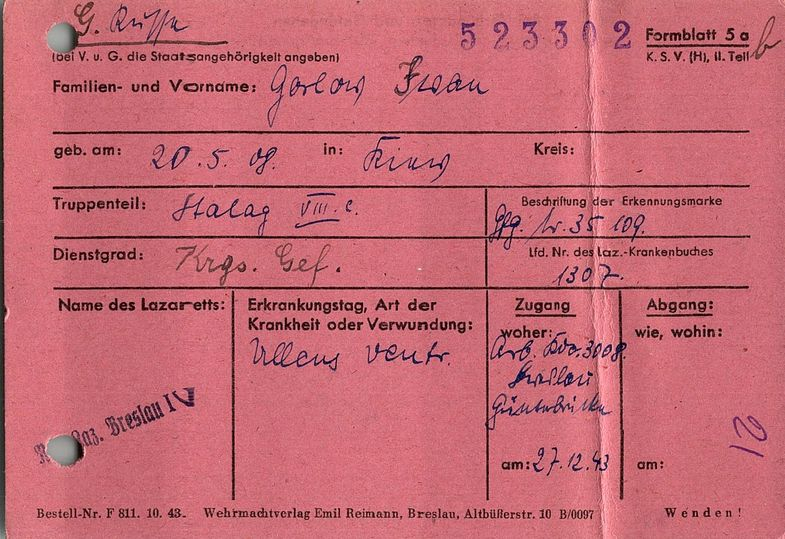 G. Russe
523302
Formblatt 5a
b
(bei V. u. G. die Staatsangehörigkeit angeben)
K. S. V. (H), II. Teil
Familien- und Vorname: Gorlow Iwan
geb. am: 20.5.09. in: Kiew Kreis:
Truppenteil: Stalag VIII.c.
Beschriftung der Erkennungsmarke
Gfg. Nr. 35 109.
Dienstgrad: Krgs. Gef.
Lfd. Nr. des Laz.-Krankenbuches
1307.
Name des Lazaretts:
Laz. Breslau IV
Erkrankungstag, Art der
Krankheit oder Verwundung:
Ulcus ventr.
Zugang
woher:
Arb. Kdo. 3008.
Breslau
am: 27.12.43
Abgang:
wie, wohin:
am:
Bestell-Nr. F 811. 10. 43. Wehrmachtverlag Emil Reimann, Breslau, Altbüßerstr. 10 B/0097 Wenden!